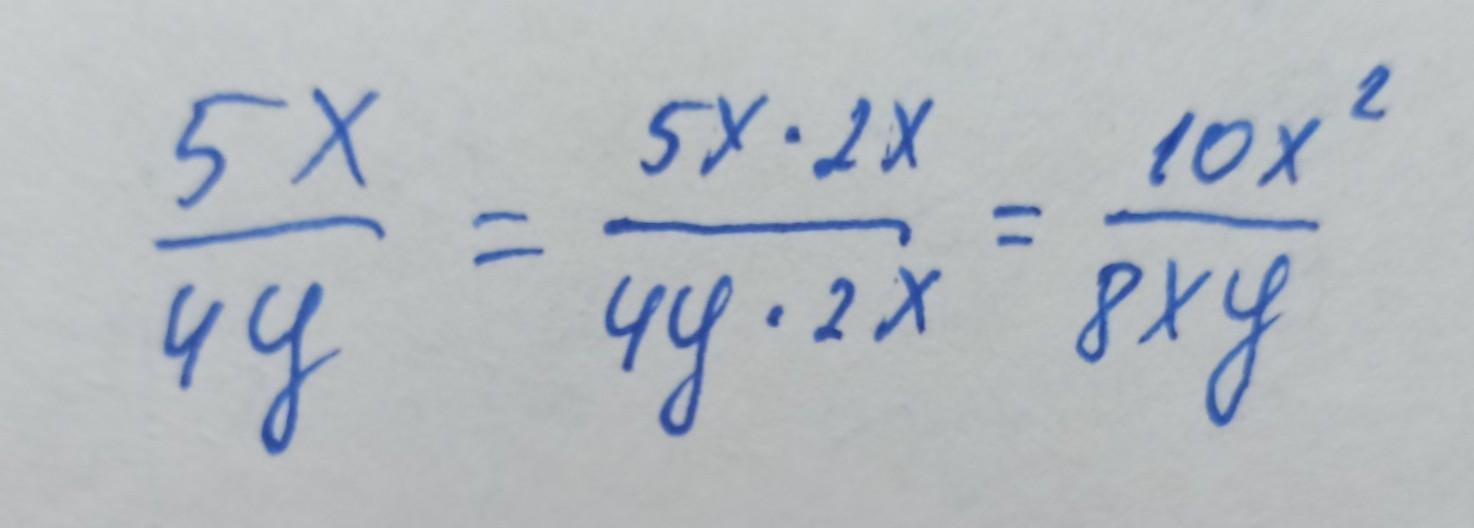 5x/4y = 5x·2x/4y·2x = 10x²/8xy